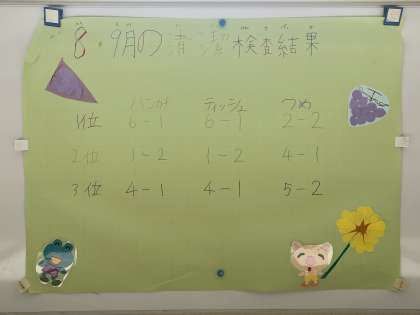 8 9月の清潔検査結果
ハンカチ ティッシュ つめ
1位 6-1 6-1 2-2
2位 1-2 1-2 4-1
3位 4-1 4-1 5-2